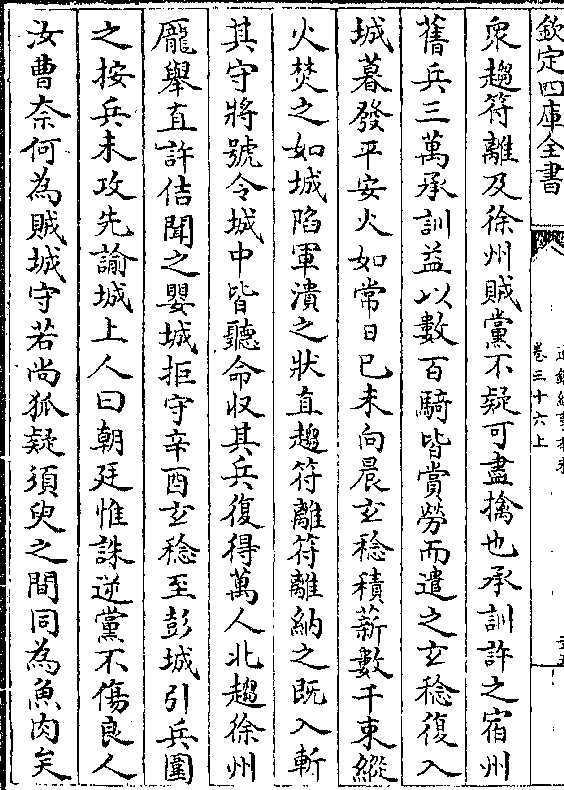 欽定四庫全書
卷三十六上
衆趨符離及徐州賊黨不疑可盡擒也承訓許之宿州
舊兵三萬承訓益以數百騎皆賞勞而遣之玄稔復入
城暮發平安火如常日已未向晨玄稔積薪數千束縱
火焚之如城陷軍潰之狀直趨符離符離納之既入斬
其守將號令城中皆聽命収其兵復得萬人北趨徐州
龎舉直許佶聞之嬰城拒守辛酉玄稔至彭城引兵圍
之按兵未攻先諭城上人曰朝廷惟誅逆黨不傷良人
汝曹奈何為賊城守若尚狐疑須臾之間同為魚肉矣